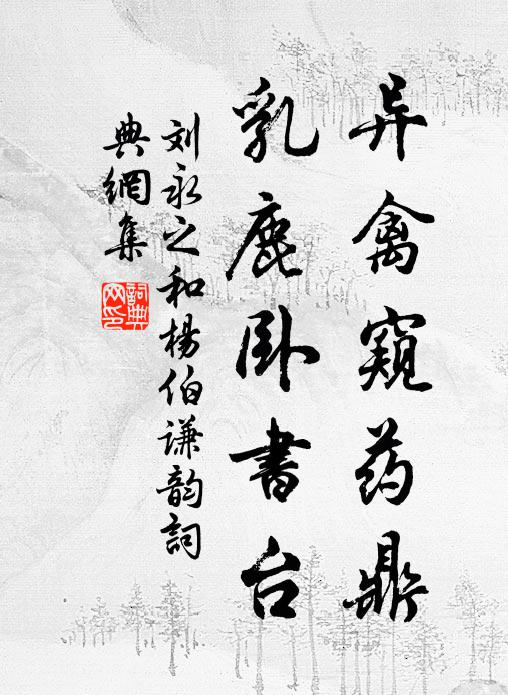 异禽窥药鼎
乳鹿卧书台
刘永之和杨伯谦韵詞
典網集
詞典网印